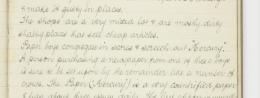 & make it quiet in places.
The shops are a very mixed lot & are mostly dirty
shabby places that sell cheap articles.
Paper boys congregate in scores & screech out "Horeany".
A person purchasing a newspaper from one of these boys
is sure to be set upon by the remainder like a number of
crows. The Paper is a very countrified paper
& has about three